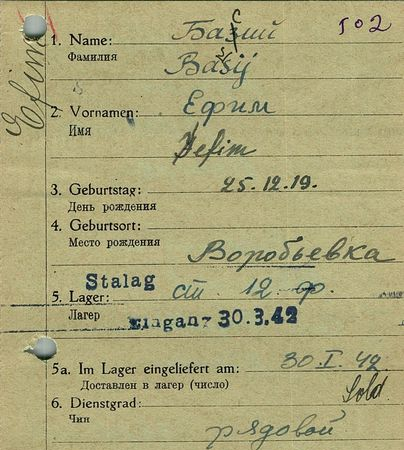 502
Efim
1. Name: Басий
Фамилия
Basij
2. Vornamen: Ефим
Имя
Jefim
3. Geburtstag: 25.12.19.
День рождения
4. Geburtsort:
Место рождения
Воробьевка
Stalag
5. Lager: 12
Лагер
Eingang 30.3.42
5a. Im Lager eingeliefert am: 30.I.42
Доставлен в лагер (число)
Sold.
6. Dienstgrad:
Чин
рядовой